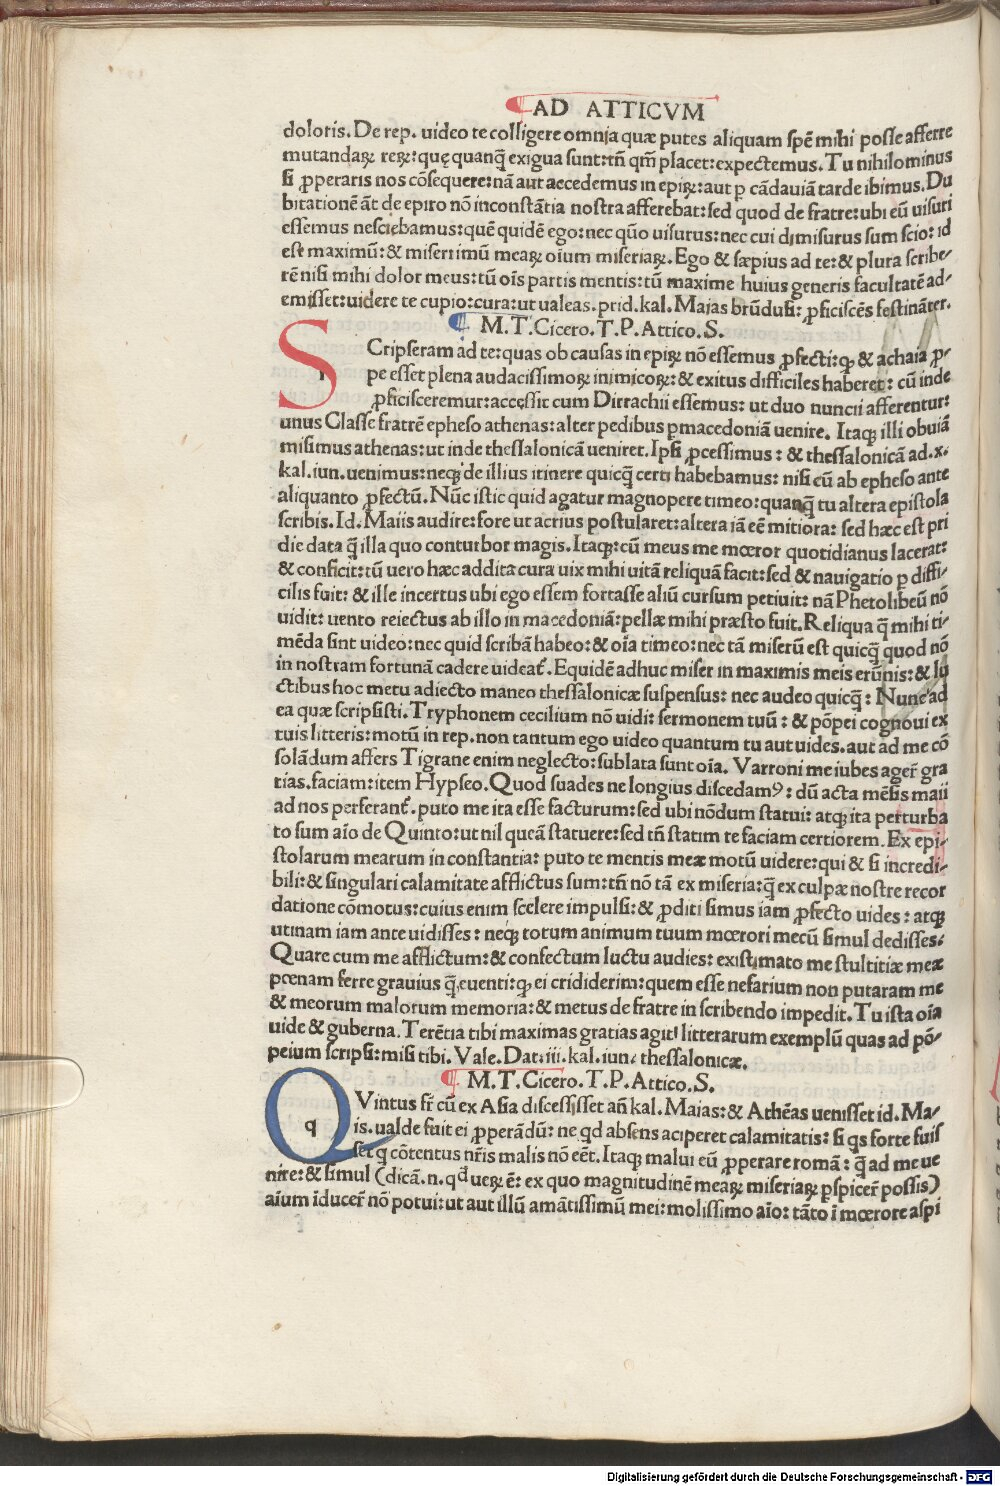 AD ATTICVM
doloris. De rep. uideo te colligere omnia quæ putes aliquam spẽ mihi posse afferre
mutandaꝝ reꝝ: quę quanq̃ exigua sunt: tñ qm̃ placet: expectemus. Tu nihilominus
si ꝓperaris nos cõsequere: nã aut accedemus in epiꝝ: aut p cãdauiã tarde ibimus. Du
bitationẽ ãt de epiro nõ inconstãtia nostra afferebat: sed quod de fratre: ubi eũ uisuri
essemus nesciebamus: quẽ quidẽ ego: nec quõ uisurus: nec cui dimisurus sum scio: id
est maximũ: & miserrimũ meaꝝ oĩum miseriaꝝ. Ego & sæpius ad te: & plura scribe-
rẽ nisi mihi dolor meus: tũ oĩs partis mentis: tũ maxime huius generis facultatẽ ad-
emisset: uidere te cupio: cura: ut ualeas. prid. kal. Maias brũdusi: ꝓficiscẽs festinãter.
M. T. Cicero. T. P. Attico. S.
SCripseram ad te: quas ob causas in epiꝝ nõ essemus ꝓfecti: qꝫ & achaia ꝓ-
pe esset plena audacissimoꝝ inimicoꝝ: & exitus difficiles haberet: cũ inde
ꝓficisceremur: accessit cum Dirrachii essemus: ut duo nuncii afferentur:
unus Classe fratrẽ epheso athenas: alter pedibus p macedoniã uenire. Itaqꝫ illi obuiã
misimus athenas: ut inde thessalonicã ueniret. Ipsi ꝓcessimus: & thessalonicã ad. x.
kal. iun. uenimus: neqꝫ de illius itinere quicq̃ certi habebamus: nisi eũ ab epheso ante
aliquanto ꝓfectũ. Nũc istic quid agatur magnopere timeo: quanq̃ tu altera epistola
scribis. Id. Maiis audire: fore ut acrius postularet: altera iã eẽ mitiora: sed hæc est pri
die data q̃ illa quo conturbor magis. Itaqꝫ: cũ meus me mœror quotidianus lacerat:
& conficit: tũ uero hæc addita cura uix mihi uitã reliquã facit: sed & nauigatio p diffi-
cilis fuit: & ille incertus ubi ego essem fortasse aliũ cursum petiuit: nã Phetolibeũ nõ
uidit: uento reiectus ab illo in macedoniã: pellæ mihi præsto fuit. Reliqua q̃ mihi ti-
mẽda sint uideo: nec quid scribã habeo: & oĩa timeo: nec tã miserũ est quicq̃ quod nõ
in nostram fortunã cadere uideat̃. Equidẽ adhuc miser in maximis meis erũnis: & lu
ctibus hoc metu adiecto maneo thessalonicæ suspensus: nec audeo quicq̃: Nunc ad
ea quæ scripsisti. Tryphonem cecilium nõ uidi: sermonem tuũ: & põpei cognoui ex
tuis litteris: motũ in rep. non tantum ego uideo quantum tu aut uides. aut ad me cõ
solãdum affers Tigrane enim neglecto: sublata sunt oĩa. Varroni me iubes ager̃ gra
tias. faciam: item Hypseo. Quod suades ne longius discedamꝰ: dũ acta mẽsis maii
ad nos perferant̃. puto me ita esse facturum: sed ubi nõdum statui: atqꝫ ita perturba
to sum aĩo de Quinto: ut nil queã statuere: sed tñ statim te faciam certiorem. Ex epi-
stolarum mearum inconstantia: puto te mentis meæ motũ uidere: qui & si incredi-
bili: & singulari calamitate afflictus sum: tñ nõ tã ex miseria: q̃ ex culpæ nostre recor
datione cõmotus: cuius enim scelere impulsi: & ꝓditi simus iam ꝓfecto uides: atqꝫ
utinam iam ante uidisses: neqꝫ totum animum tuum mœrori mecũ simul dedisses:
Quare cum me afflictum: & confectum luctu audies: existimato me stultitiæ meæ
pœnam ferre grauius q̃ euenti: qꝫ ei crididerim: quem esse nefarium non putaram me
& meorum malorum memoria: & metus de fratre in scribendo impedit. Tu ista oĩa
uide & guberna. Terẽtia tibi maximas gratias agit: litterarum exemplũ quas ad põ-
peium scripsi: misi tibi. Vale. Dat. iii. kal. iun. thessalonicæ.
M. T. Cicero. T. P. Attico. S.
QVintus fr̃ cũ ex Asia discessisset añ kal. Maias: & Athẽas uenisset id. Ma-
is. ualde fuit ei ꝓperãdũ: ne qd absens aciperet calamitatis: si qs forte fuis
set q cõtentus nr̃is malis nõ eẽt. Itaqꝫ malui eũ ꝓperare romã: q̃ ad me ue
nire: & simul (dicã. n. qd ueꝝ ẽ: ex quo magnitudinẽ meaꝝ miseriaꝝ pspicer̃ possis)
aĩum ĩducer̃ nõ potui: ut aut illũ amãtissimũ mei: molissimo aĩo: tãto ĩ mœrore aspi
Digitalisierung gefördert durch die Deutsche Forschungsgemeinschaft - DFG